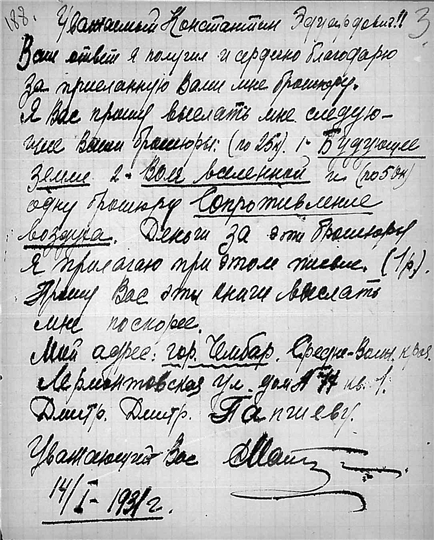 188. Уважаемый Константин Эдуардович!! 3
Ваш ответ я получил и сердечно благодарю
за присланную Вами мне брошюру.
Я Вас прошу выслать мне следую-
щие Ваши брошюры: (по 25к). 1- Будующее
земли 2- Воля вселенной и (по 50к)
одну брошюру Сопротивление
воздуха. Деньги за эти брошюры
я прилагаю при этом письме. (1р).
Прошу Вас эти книги выслать
мне поскорее.
Мой адрес: гор. Чембар. Средне-Волж. края.
Лермонтовская ул. дом № кв. 1.
Дмитр. Дмитр.
Уважающий Вас
14/I-1931г.